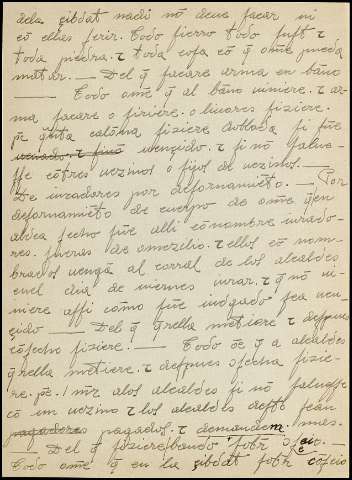 dela çibdat nadi nõ deue sacar ni
cõ ellas ferir. Todo fierro todo fust τ
toda piedra. τ toda cosa cõ q̃ om̃e pueda
matar. — Del q̃ sacare arma en bãno
— Todo om̃e q̃ al bãno uiniere. τ ar-
ma sacare o firiere. o liuores fiziere.
pc̃ q̃nta calõnna fiziere dobloda si fũe
uençido. τ si nõ salue-
sse cõ tres uezinos o fijos de uezinos. —
De iuradores por desornamiẽto. — Por
desornamiẽto de cuerpo de om̃e q̃ en
aldea fecho fũe alli cõ nombre iurado-
res. fueras de omezilio. τ ellos cõ nom-
brados uengã al corral de los alcaldes
enel dia de uiernes iurar. τ q̃ nõ ui-
niere assi cõmo fũe iudgado sea uen-
çido — Del q̃ q̃rella metiere τ despues
cõfecho fiziere. — Todo õe q̃ a alcaldes
q̃rella metiere. τ despues cõfecho fizie-
re. pc̃. I mr̃ alos alcaldes si nõ saluesse
cõ un uezino τ los alcaldes desto sean
pagados. τ demanden mas.
— Del q̃ fiziere bando sobr̃ cõceio. —
Todo om̃e q̃ en la çibdat sobr̃ cõceio